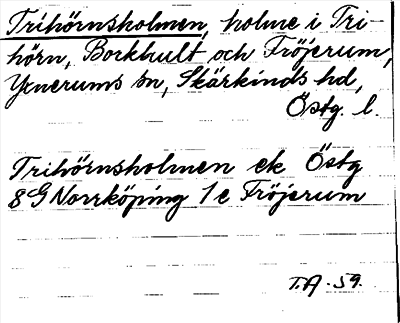 Trihörnsholmen, holme i Tri-
hörn, Borkhult och Fröjerum,
Yxnerums sn, Skärkinds hd,
Östg. l.
Trihörnsholmen ek Östg
8G Norrköping 1c Fröjerum
T.A. 59.